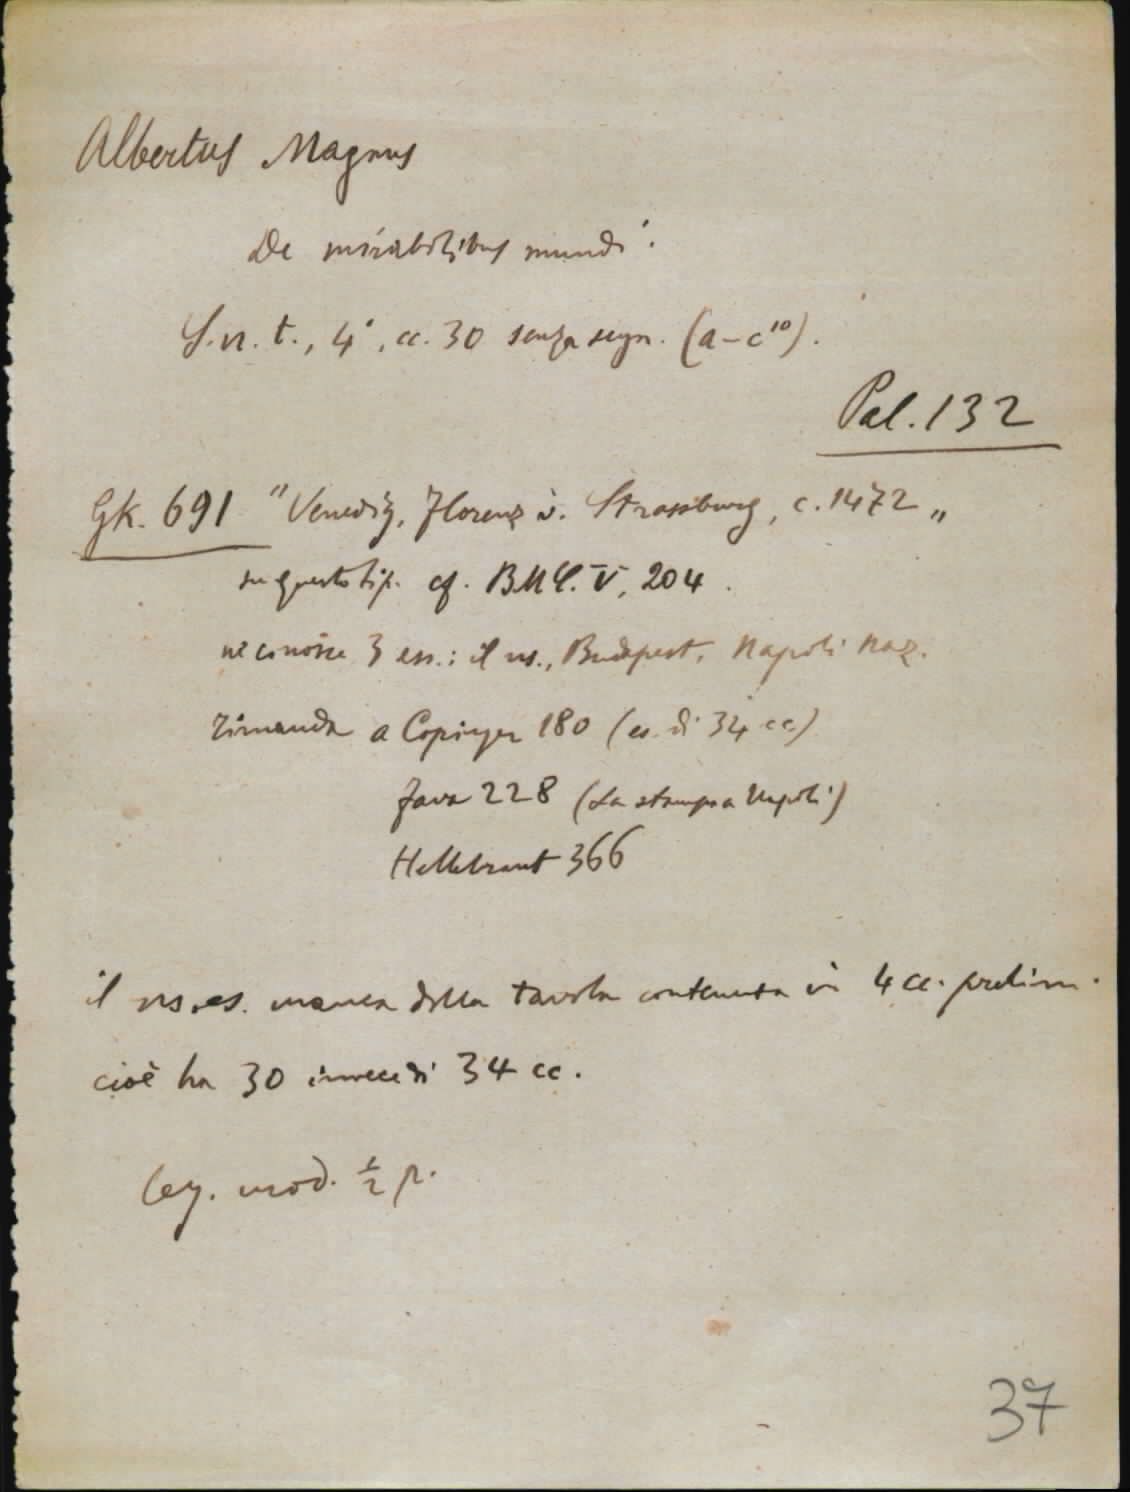 Albertus Magnus
De mirabilibus mundi.
S.n.t., 4°, cc. 30 senza segn. (a-c¹⁰).
Pal. 132
GK. 691 "Venedig, Florenz u. Strassburg, c. 1472„
su questo tip. cf. BMC. V, 204.
ne conosce 3 es.: il ns., Budapest, Napoli Naz.
rimanda a Copinger 180 (es. di 34 cc)
Fava 228 (La stampa a Napoli)
Hellebrant 366
il ns. es. manca della tavola contenuta in 4 cc. prelim.
cioè ha 30 invece di 34 cc.
Leg. mod. ½ p.
37